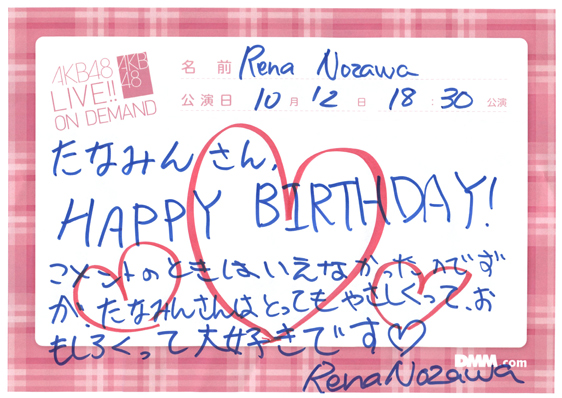 AKB48
LIVE!!
ON DEMAND
AKB
48
名前 Rena Nozawa
公演日 10月12日 18:30公演
たなみんさん、
HAPPY BIRTHDAY!
コメントのときはいえなかったのです
が、たなみんさんはとってもやさしくって、お
もしろくって大好きです♡
DMM.com
Rena Nozawa